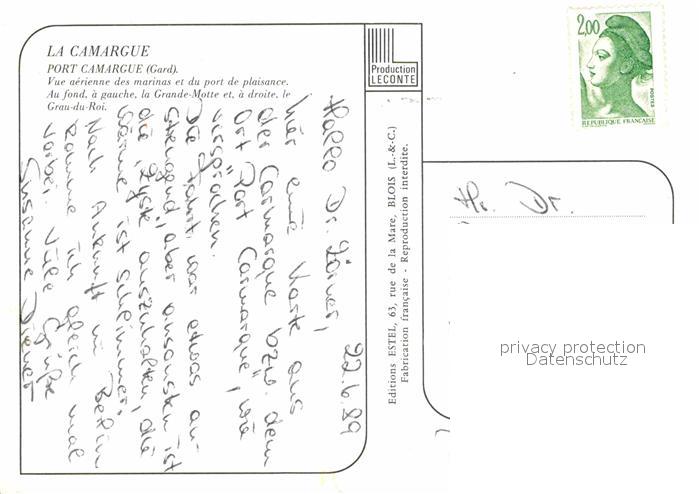 LA CAMARGUE
PORT CAMARGUE (Gard).
Vue aérienne des marinas et du port de plaisance.
Au fond, à gauche, la Grande-Motte et, à droite, le
Grau-du-Roi.
Production
LECONTE
2,00
POSTES
REPUBLIQUE FRANÇAISE
22.6.89
Hallo Dr.
hier eine Karte aus
der Carmarque bzw. dem
Ort Port Carmarque, wie
versprochen.
Die Fahrt war etwas an
strengend, aber ansonsten ist
die auszuhalten, die
Wärme ist schlimmer.
Nach Ankunft in Berlin
komme ich gleich mal
vorbei. Viele Grüße
Susanne
Editions ESTEL, 63, rue de la Mare, BLOIS (L.-&-C.)
Fabrication française - Reproduction interdite.
Hr. Dr.
privacy protection
Datenschutz